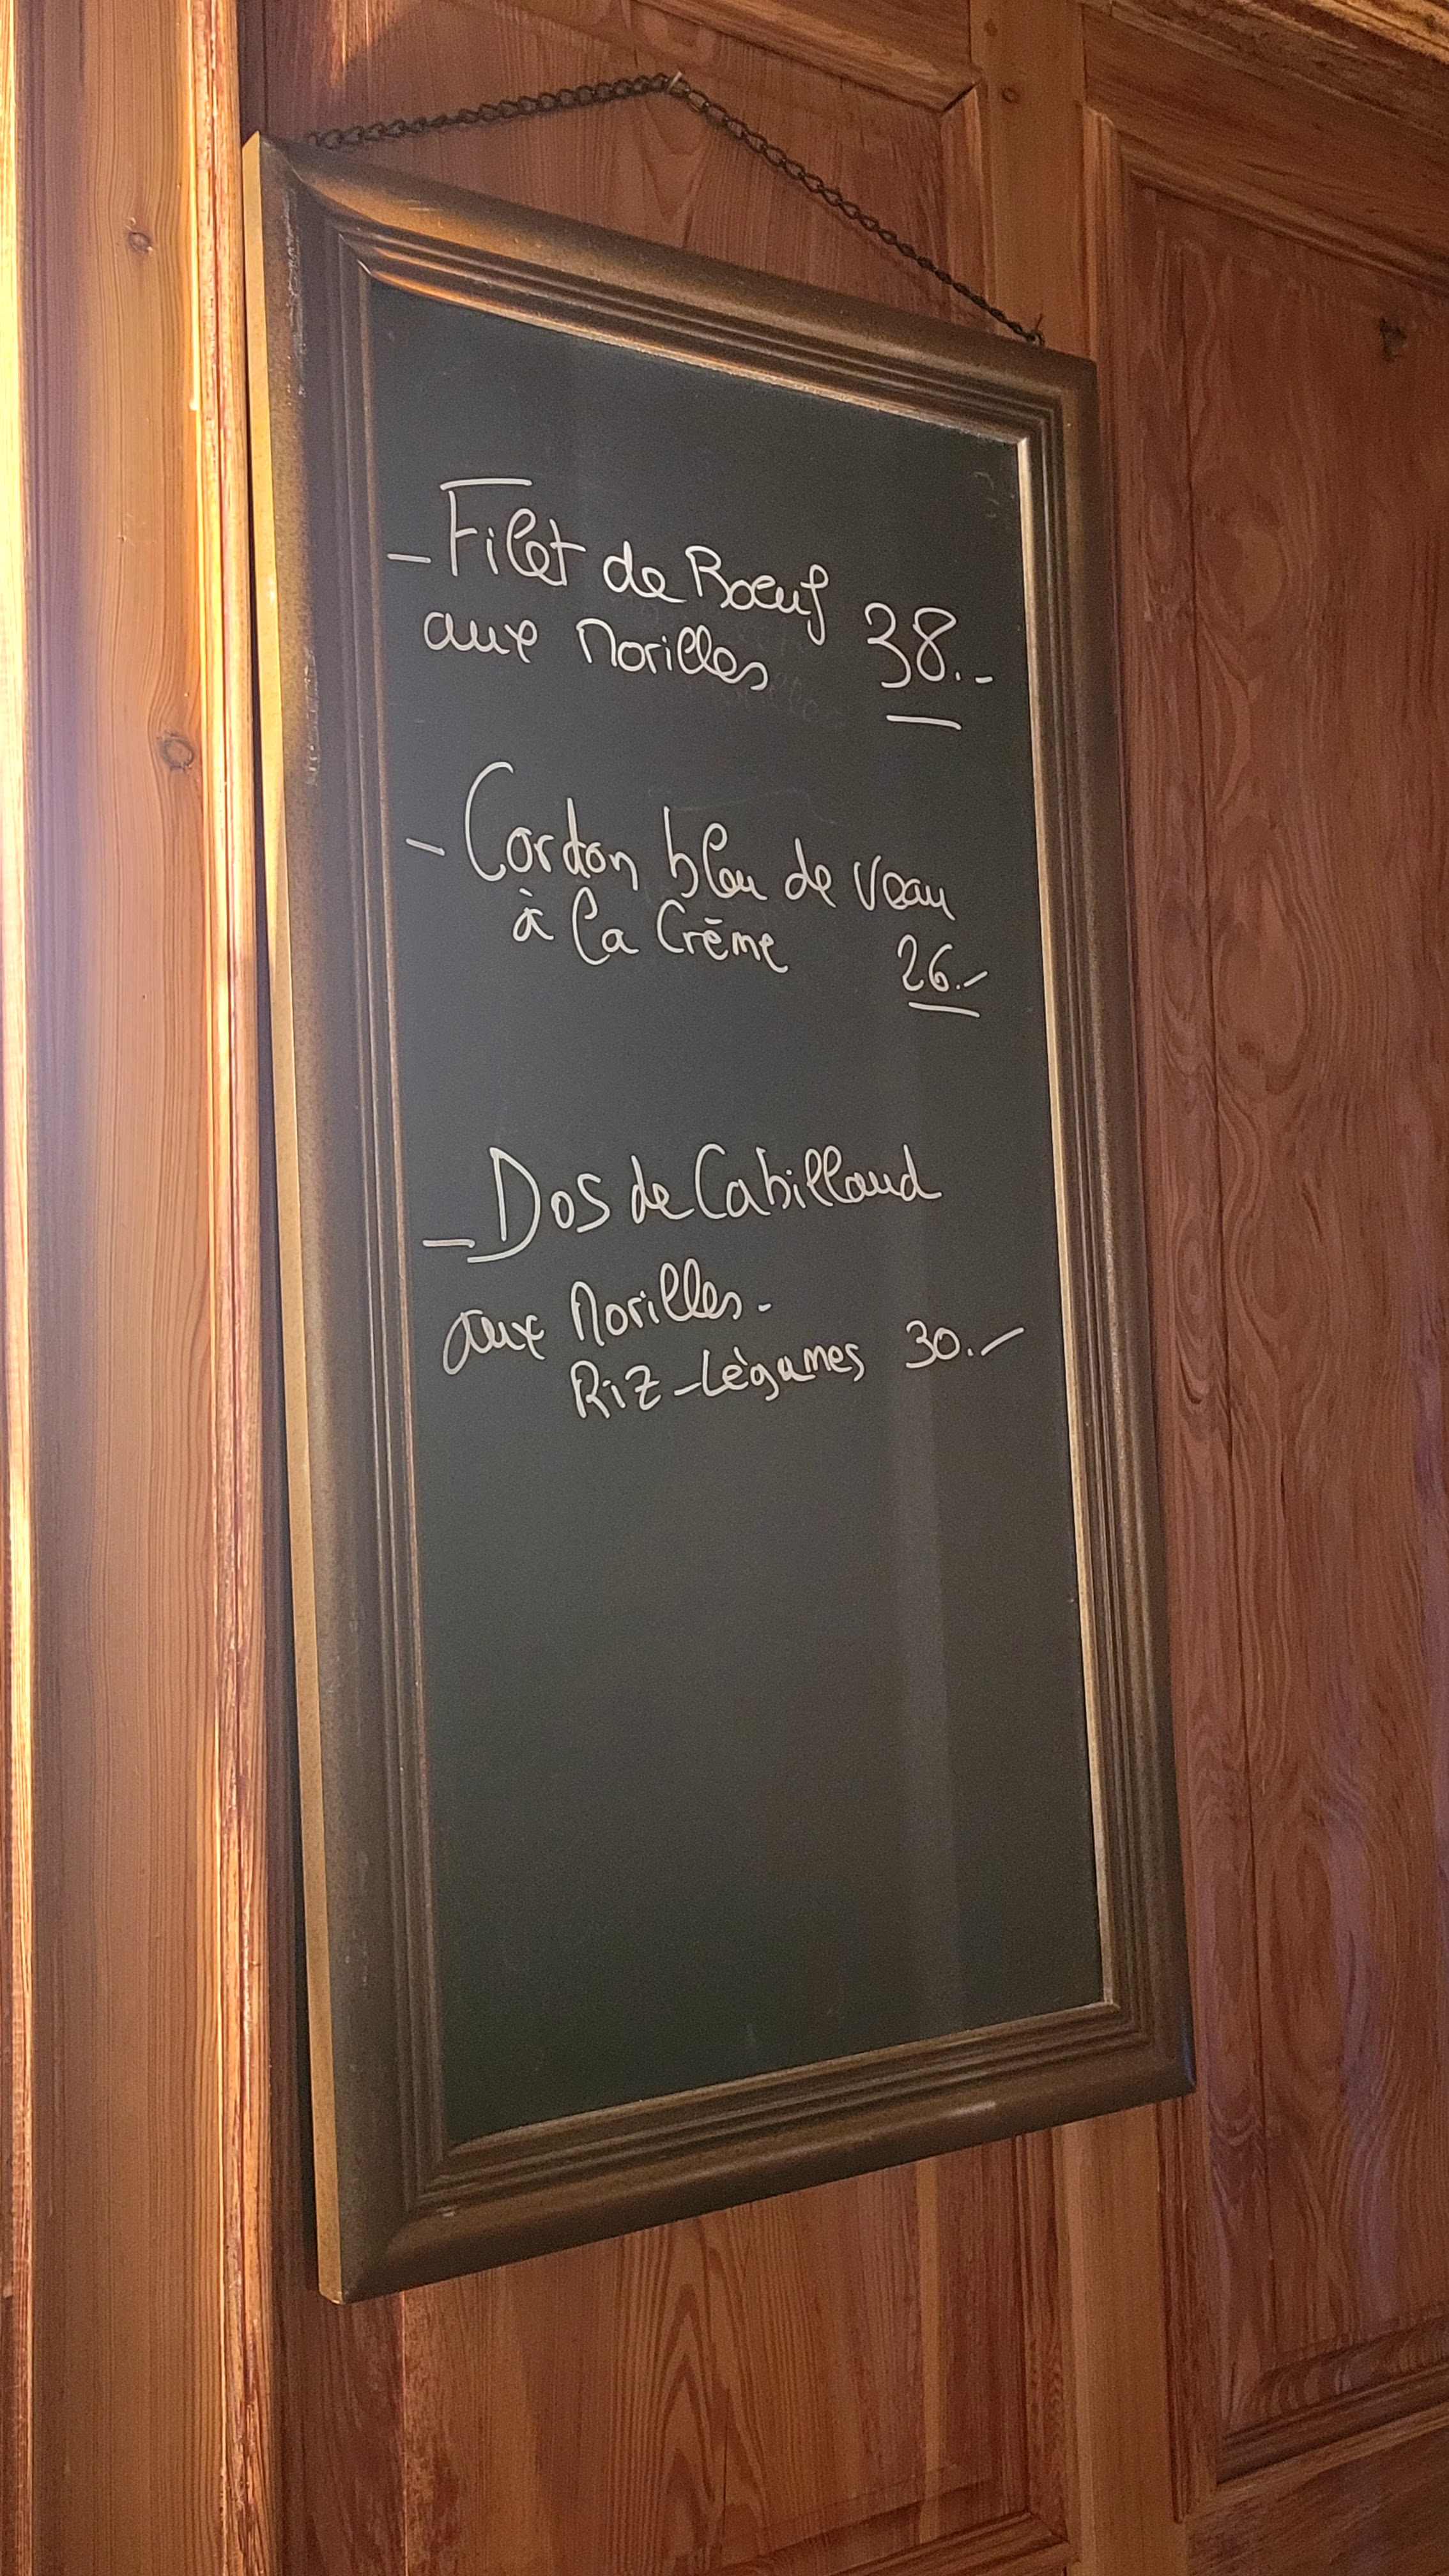 - Filet de Boeuf
aux Morilles 38.-
- Cordon bleu de Veau
à la Crème 26.-
- Dos de Cabillaud
aux Morilles.
Riz - Lègumes 30.-